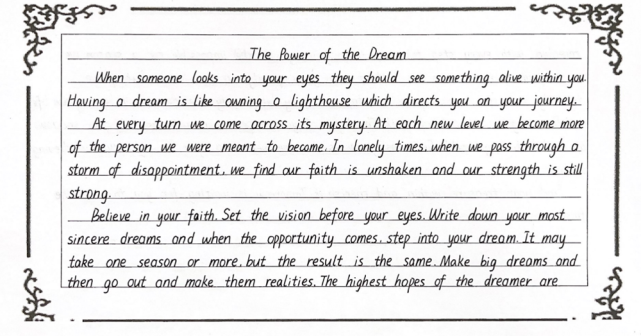 The Power of the Dream
When someone looks into your eyes they should see something alive within you.
Having a dream is like owning a lighthouse which directs you on your journey.
At every turn we come across its mystery. At each new level we become more
of the person we were meant to become. In lonely times, when we pass through a
storm of disappointment, we find our faith is unshaken and our strength is still
strong.
Believe in your faith. Set the vision before your eyes. Write down your most
sincere dreams and when the opportunity comes, step into your dream. It may
take one season or more, but the result is the same. Make big dreams and
then go out and make them realities. The highest hopes of the dreamer are